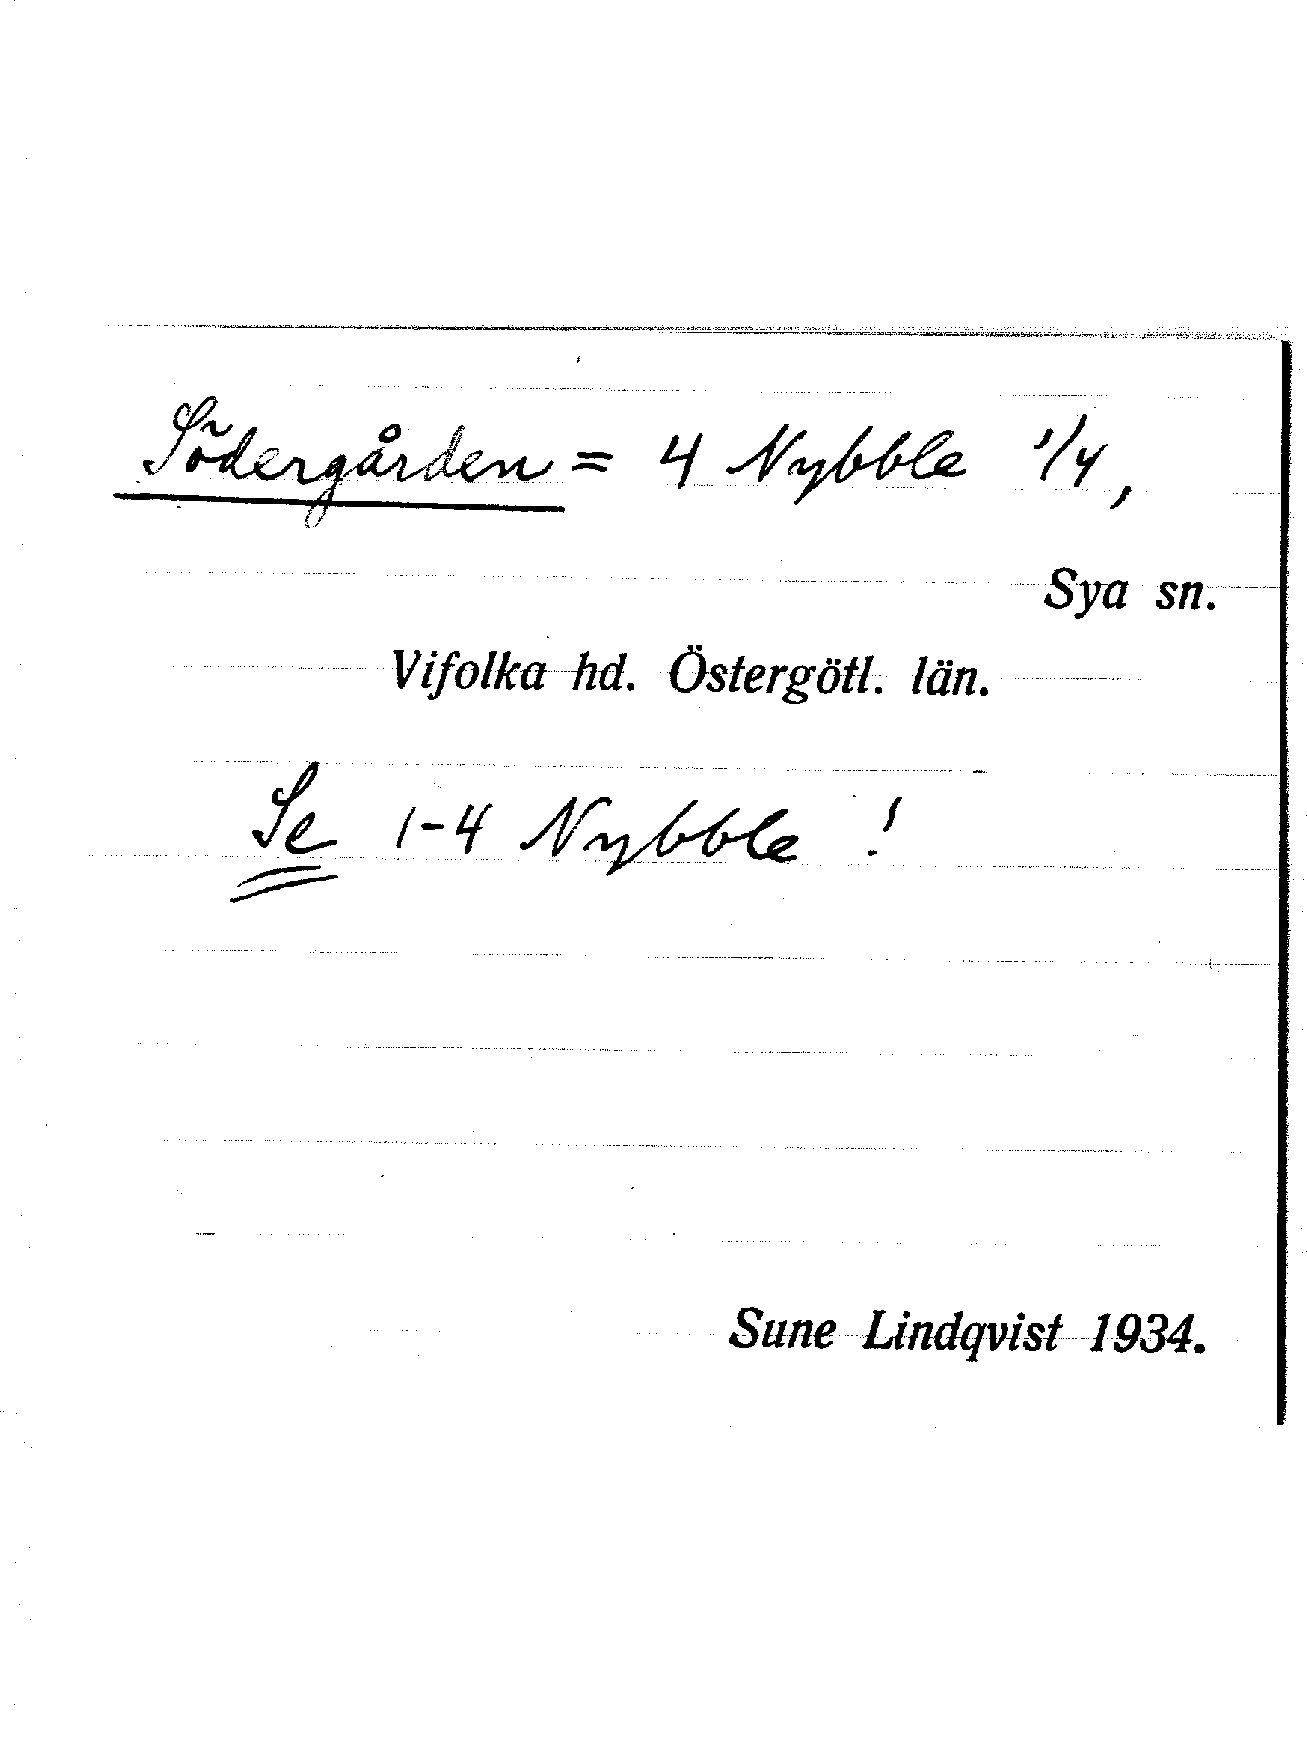 Södergården = 4 Nybble 1/4,
Sya sn.
Vifolka hd. Östergötl. län.
Se 1-4 Nybble !
Sune Lindqvist 1934.